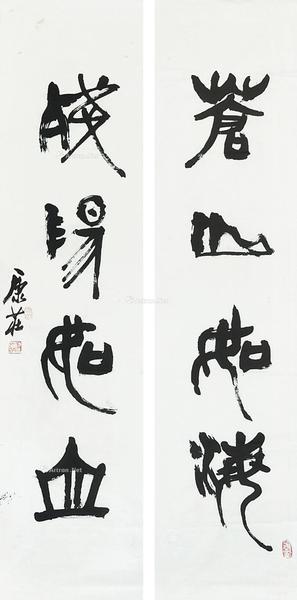 蒼山如海
殘陽如血
康莊